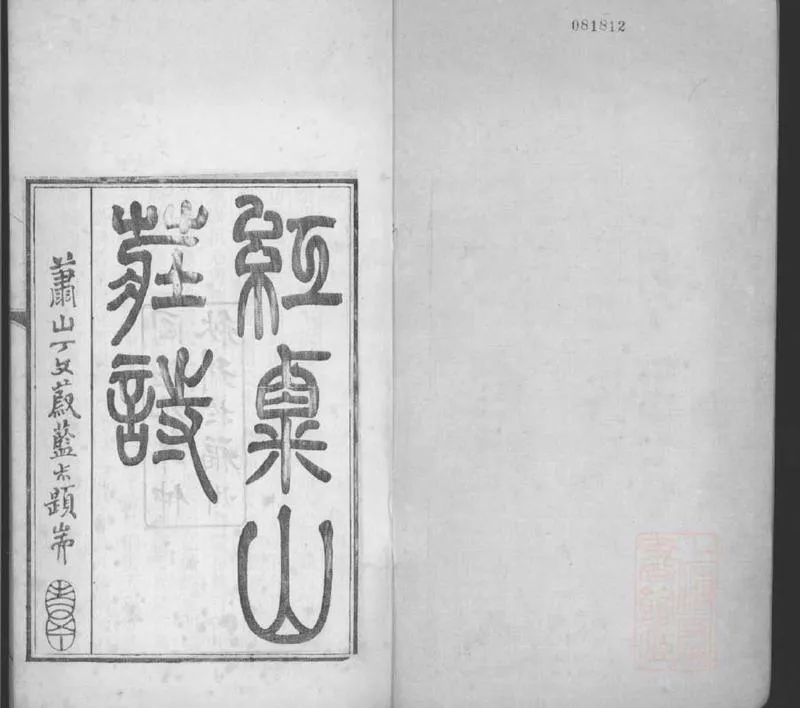 081812
紅粟山
莊詩
蕭山丁文蔚藍尗題耑